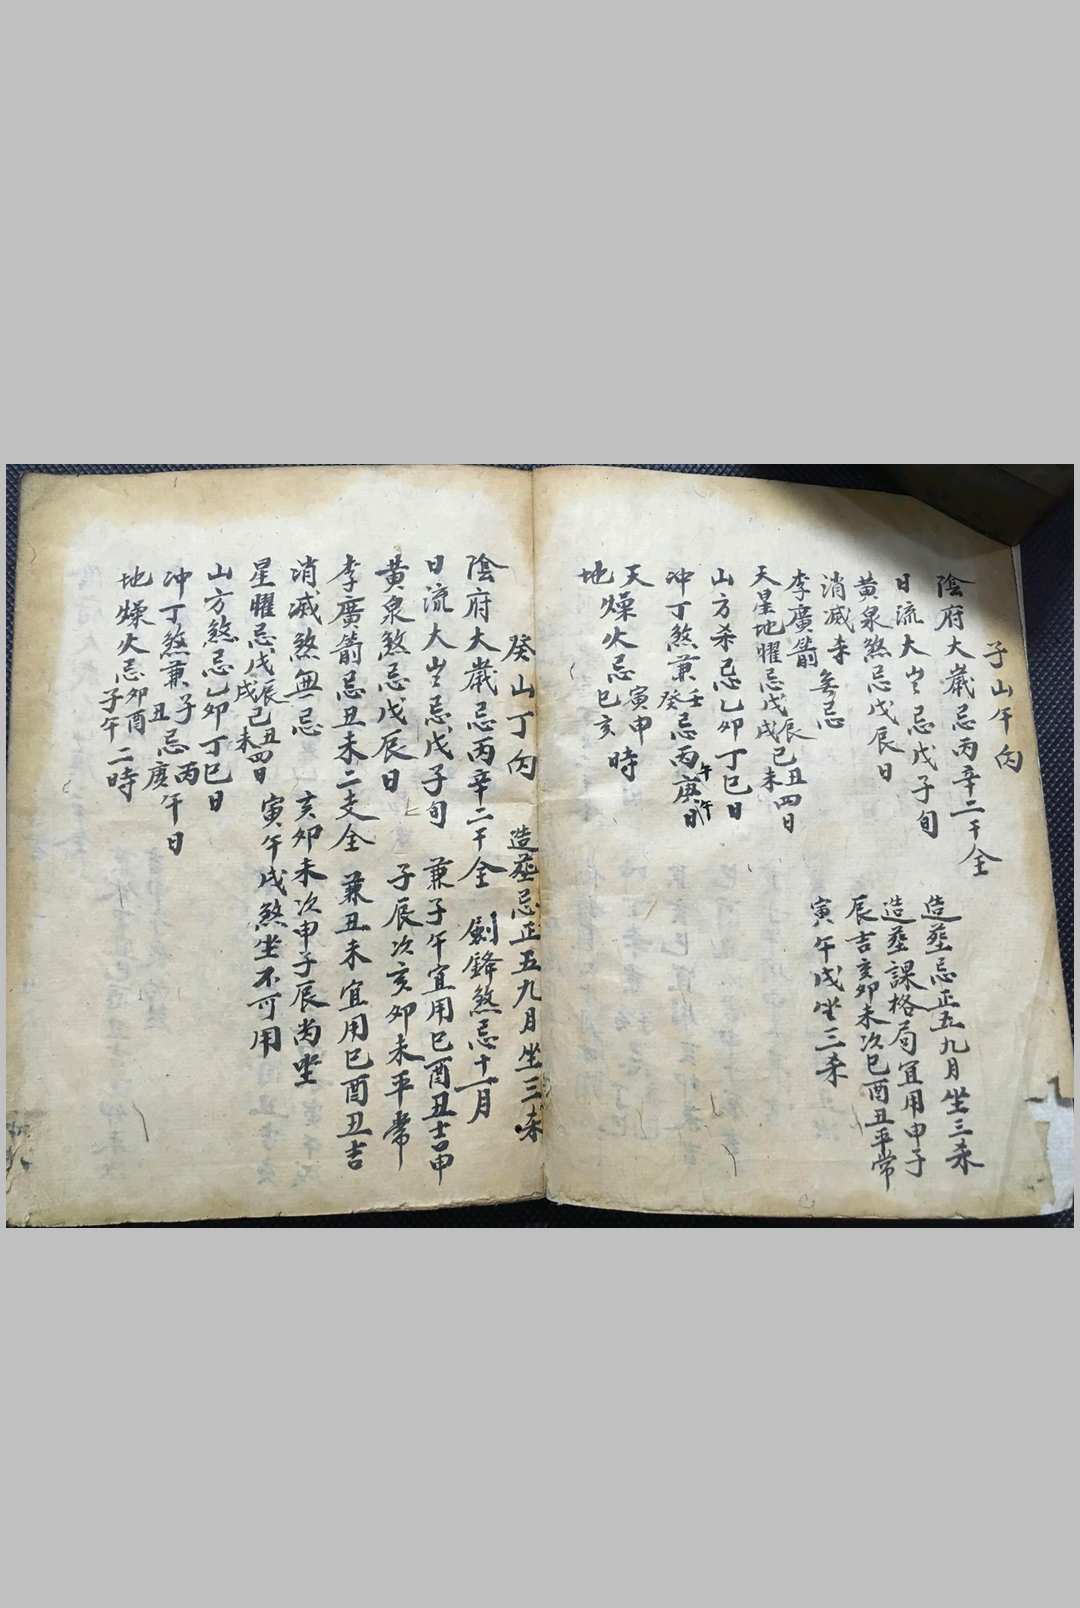 子山午向
陰府大歲忌丙辛二干全 造葬忌正五九月坐三杀
日流大歲忌戊子旬 造葬課格局宜用申子
黃泉煞忌戊辰日 辰吉亥卯未次巳酉丑平常
消滅杀 無忌 寅午戌坐三杀
李廣箭
天星地曜忌戊辰戌己丑未四日
山方杀忌乙卯丁巳日
冲丁煞兼壬癸忌丙午庚午日
天地燥火忌寅申巳亥時
癸山丁向 造葬忌正五九月坐三杀
陰府大歲忌丙辛二干全 劍鋒煞忌十一月
日流大歲忌戊子旬 兼子午宜用巳酉丑吉申
黃泉煞忌戊辰日 子辰次亥卯未平常
李廣箭忌丑未二支全 兼丑未宜用巳酉丑吉
消滅煞無忌 亥卯未次申子辰尚坐
星曜忌戊辰戌己丑未四日 寅午戌煞坐不可用
山方煞忌乙卯丁巳日
冲丁煞兼子丑忌丙庚午日
地燥火忌卯酉子午二時